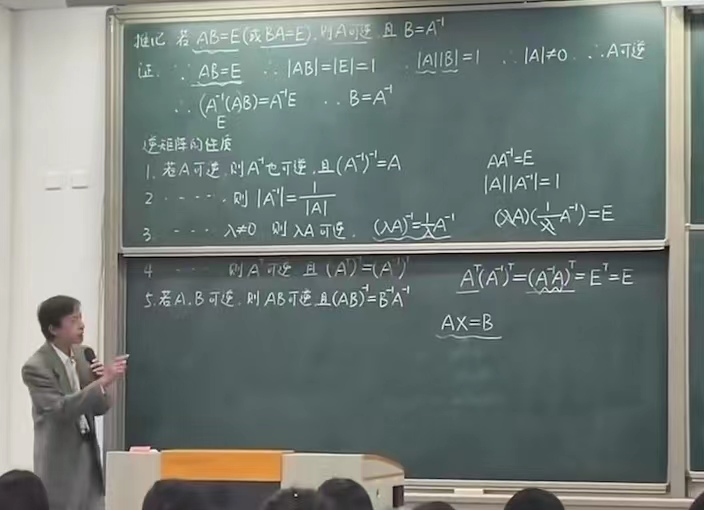 推论 若 AB=E(或BA=E),则A可逆 且 B=A⁻¹
证 ∵ AB=E ∴ |AB|=|E|=1 ∴ |A||B|=1 ∴ |A|≠0 ∴ A可逆
∴ (A⁻¹(AB)=A⁻¹E ∴ B=A⁻¹
E
逆矩阵的性质
1. 若A可逆,则A⁻¹也可逆,且(A⁻¹)⁻¹=A
AA⁻¹=E
2 ····· 则 |A⁻¹|=1/|A|
|A||A⁻¹|=1
3. ····· λ≠0 则 λA可逆. (λA)⁻¹=1/λ A⁻¹
(λA)(1/λ A⁻¹)=E
4 ····· 则Aᵀ可逆 且 (Aᵀ)⁻¹=(A⁻¹)ᵀ
Aᵀ(A⁻¹)ᵀ=(A⁻¹A)ᵀ=Eᵀ=E
5. 若A、B可逆,则AB可逆,且(AB)⁻¹=B⁻¹A⁻¹
AX=B